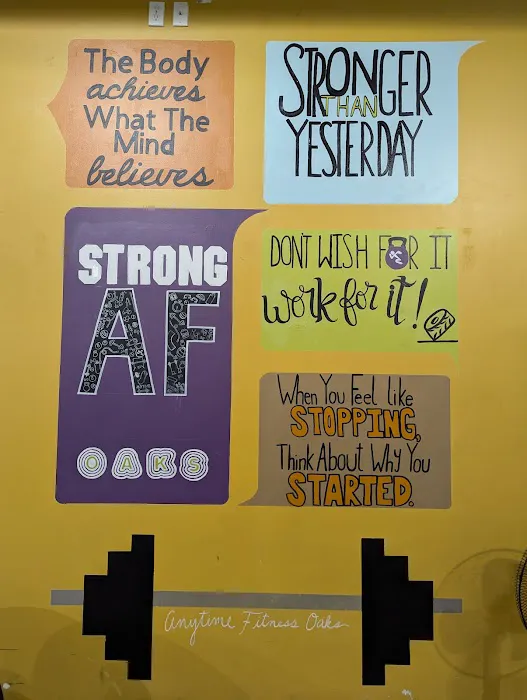 The Body
achieves
What The
Mind
believes
STRONGER
THAN
YESTERDAY
STRONG
AF
OAKS
DON'T WISH FOR IT
work for it!
When You Feel like
STOPPING,
Think About Why You
STARTED.
Anytime Fitness Oaks